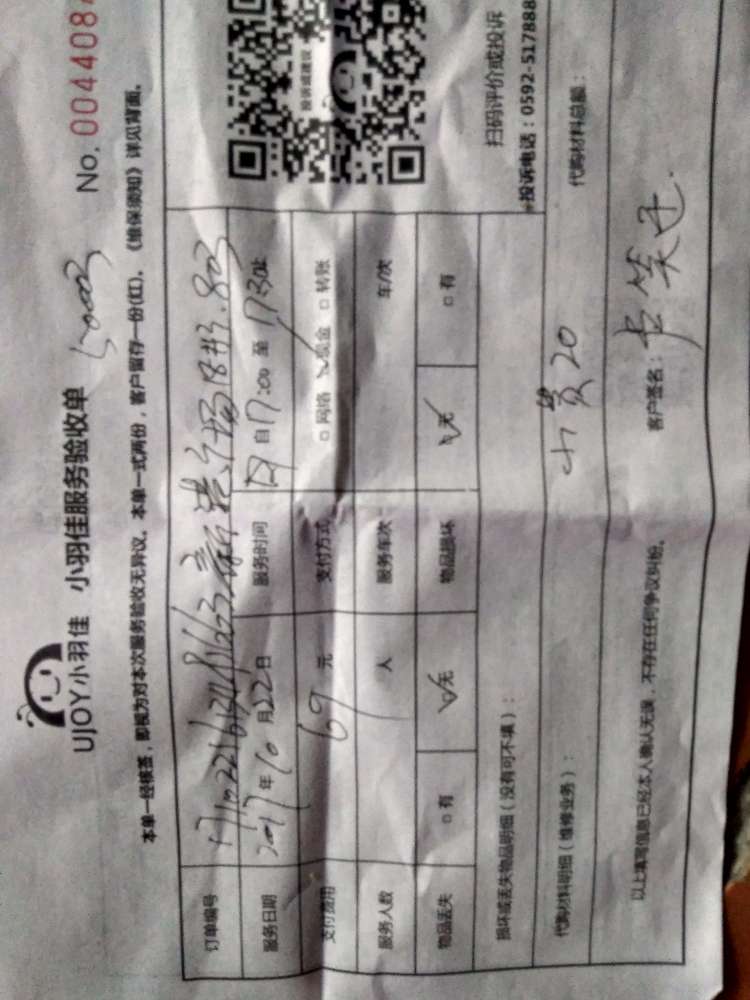 UJOY小羽佳 小羽佳服务验收单 No. 0044084
本单一经核签，即视为对本次服务验收无异议。本单一式两份，客户留存一份(红)。《维保须知》详见背面。
订单编号
服务日期 2017年10月22日 服务时间 自17:00至17:30止
支付费用 69元 支付方式 □网络 ☑现金 □转账
服务人数 人 服务车次 车/次
物品丢失 □有 ☑无 物品损坏 ☑无 □有
损坏或丢失物品明细（没有可不填）：
代购材料明细（维修业务）： 小费20 代购材料总额：
以上填写信息已经本人确认无误，不存在任何争议纠纷。 客户签名：
投诉或建议
扫码评价或投诉
*投诉电话：0592-517888